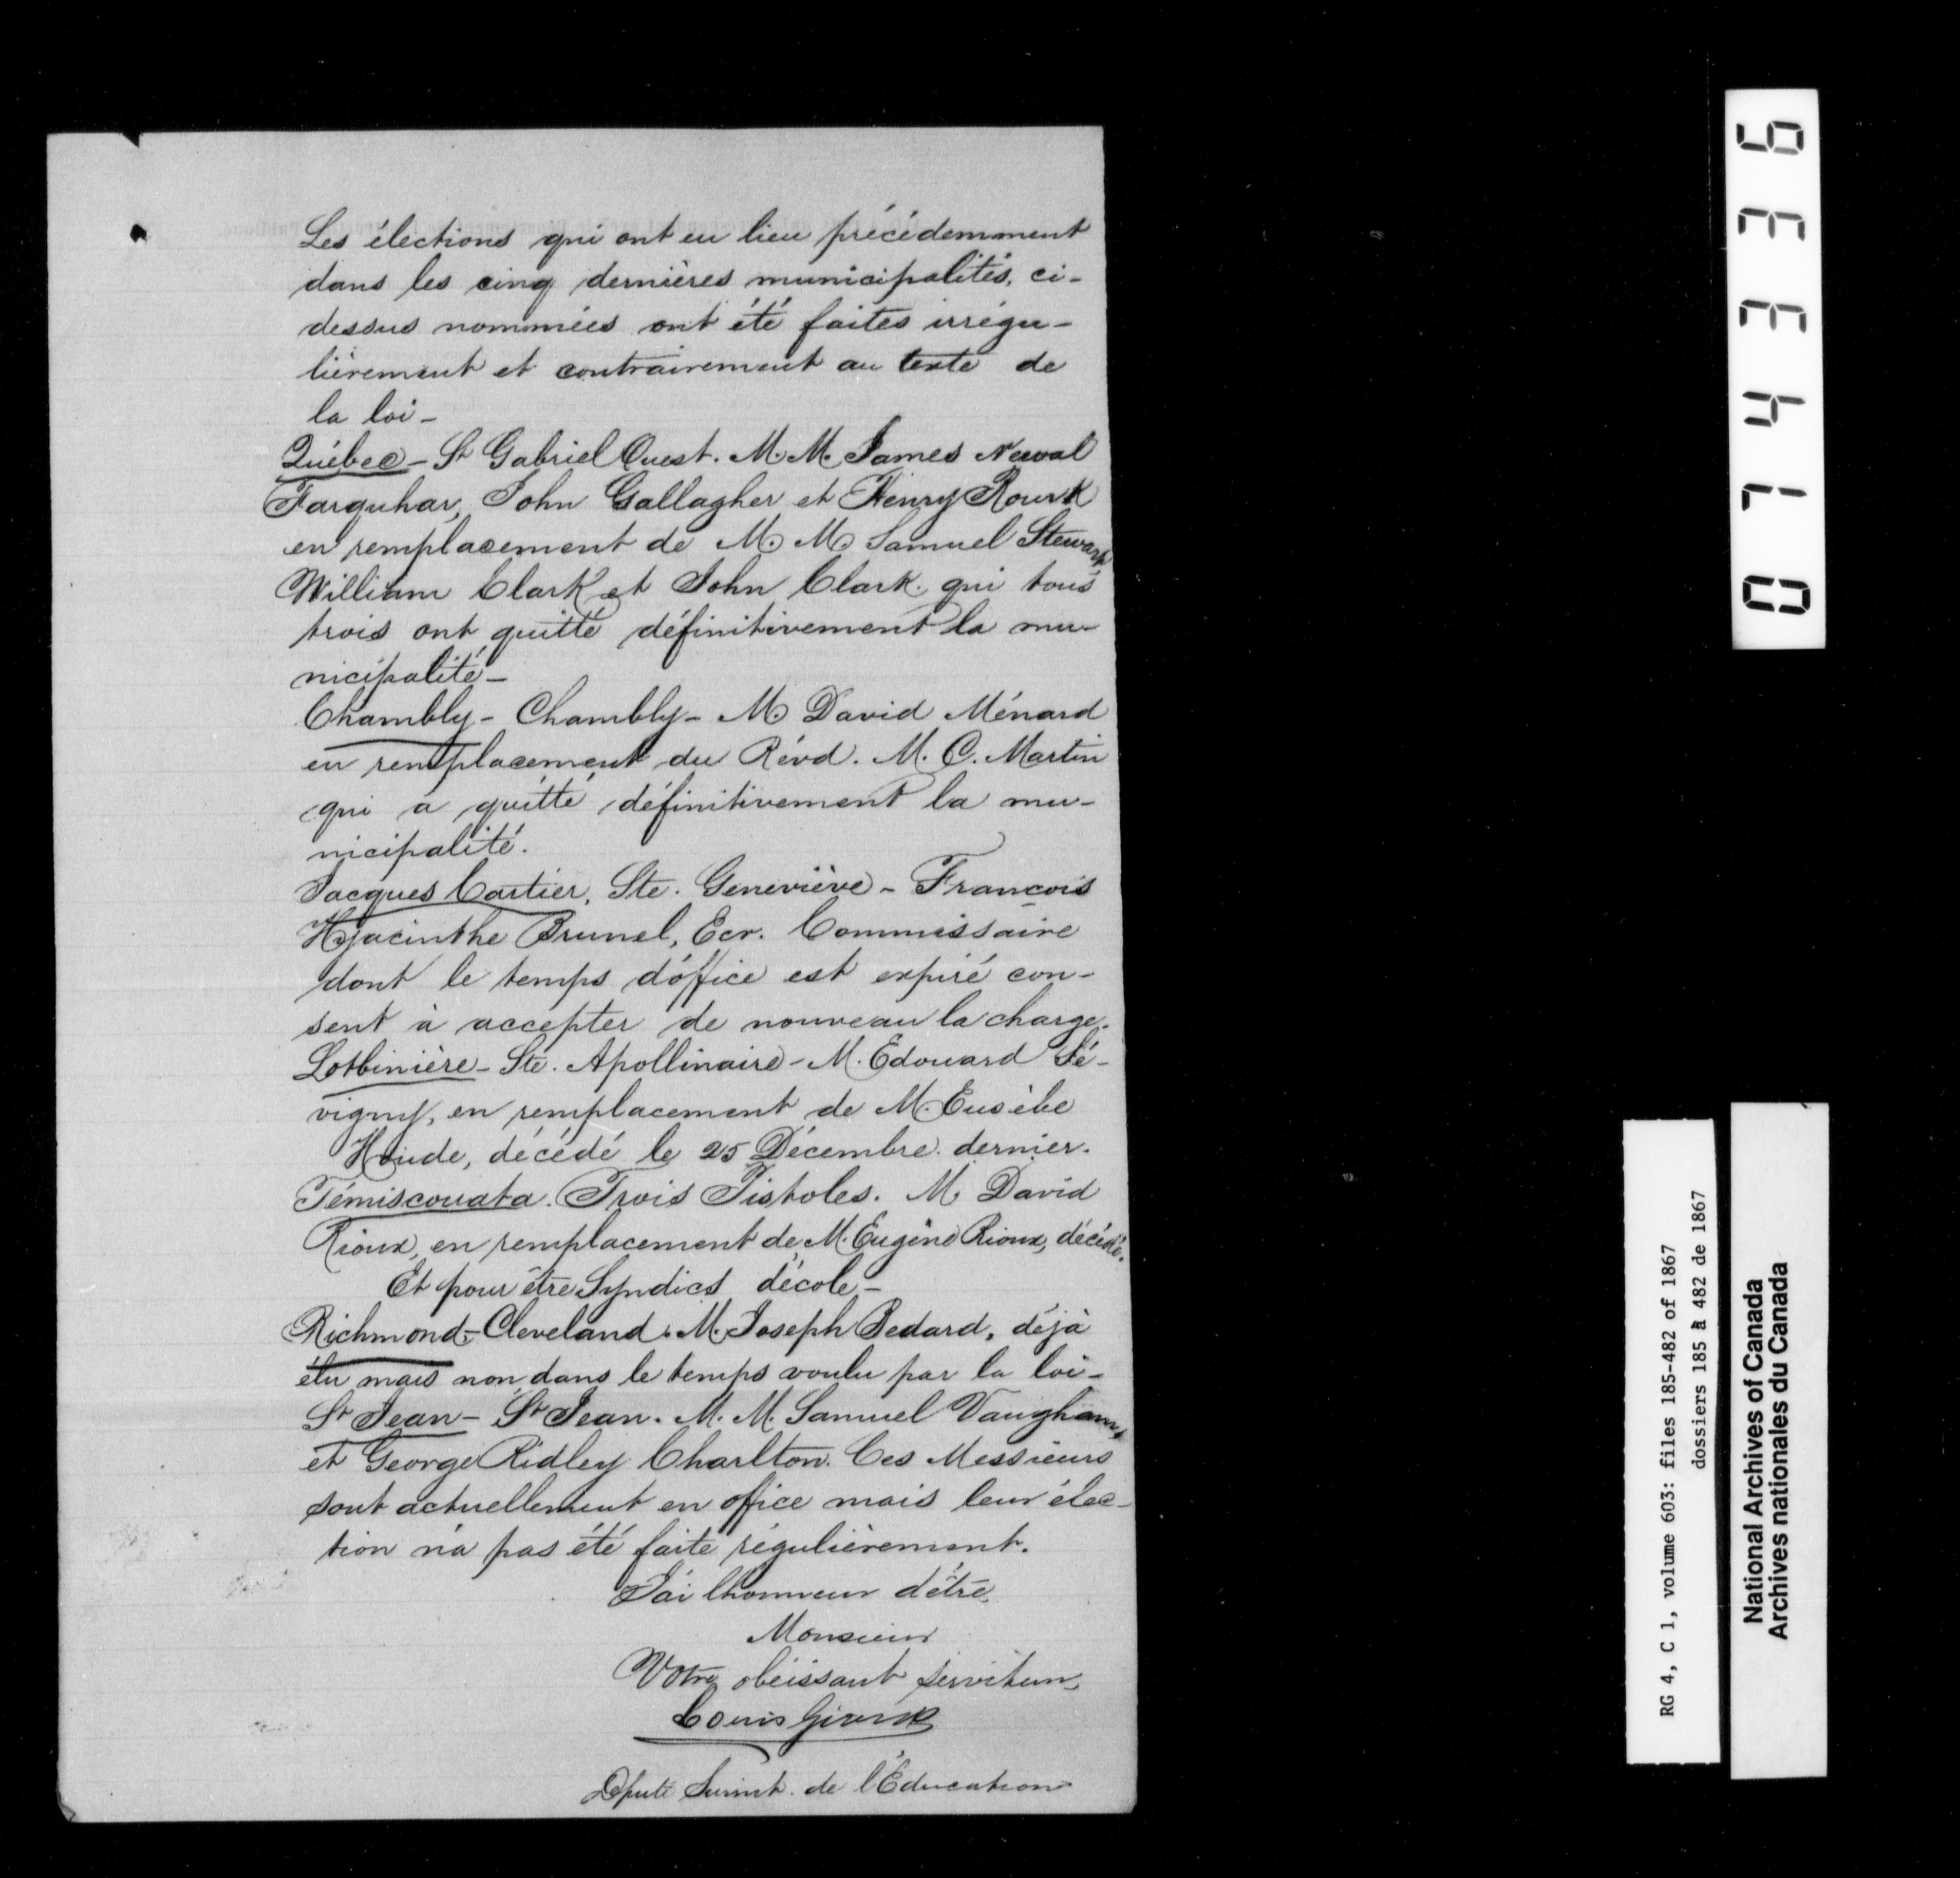 Les élections qui ont eu lieu précédemment
dans les cinq dernières municipalités, ci-
dessus nommées ont été faites irrégu-
lièrement et contrairement au texte de
la loi -
Québec - St Gabriel Ouest. M. M. James Newal
Farquhar, John Gallagher et Henry Rourk
en remplacement de M. M. Samuel Stewart,
William Clark et John Clark. qui tous
trois ont quitté définitivement la mu-
nicipalité -
Chambly - Chambly - M. David Ménard
en remplacement du Révd. M. C. Martin
qui a quitté définitivement la mu-
nicipalité.
Jacques Cartier, Ste. Geneviève - François
Hyacinthe Brunel, Ecr. Commissaire
dont le temps d'office est expiré con-
sent à accepter de nouveau la charge.
Lotbinière - Ste. Apollinaire - M. Edouard Sé-
vigny, en remplacement de M. Eusèbe
Houde, décédé le 25 Décembre dernier.
Témiscouata. Trois Pistoles. M. David
Rioux, en remplacement de M. Eugène Rioux, décédé.
Et pour être Syndics d'école -
Richmond - Cleveland. M. Joseph Bedard, déjà
élu mais non dans le temps voulu par la loi -
St Jean - St Jean. M. M. Samuel Vaughan,
et George Ridley Charlton. Ces Messieurs
sont actuellement en office mais leur élec-
tion n'a pas été faite régulièrement.
J'ai l'honneur d'être,
Monsieur
Votre obéissant serviteur,
Louis Giard
Député Surint. de l'Éducation
074336
RG 4, C 1, volume 603: files 185-482 of 1867
dossiers 185 à 482 de 1867
National Archives of Canada
Archives nationales du Canada